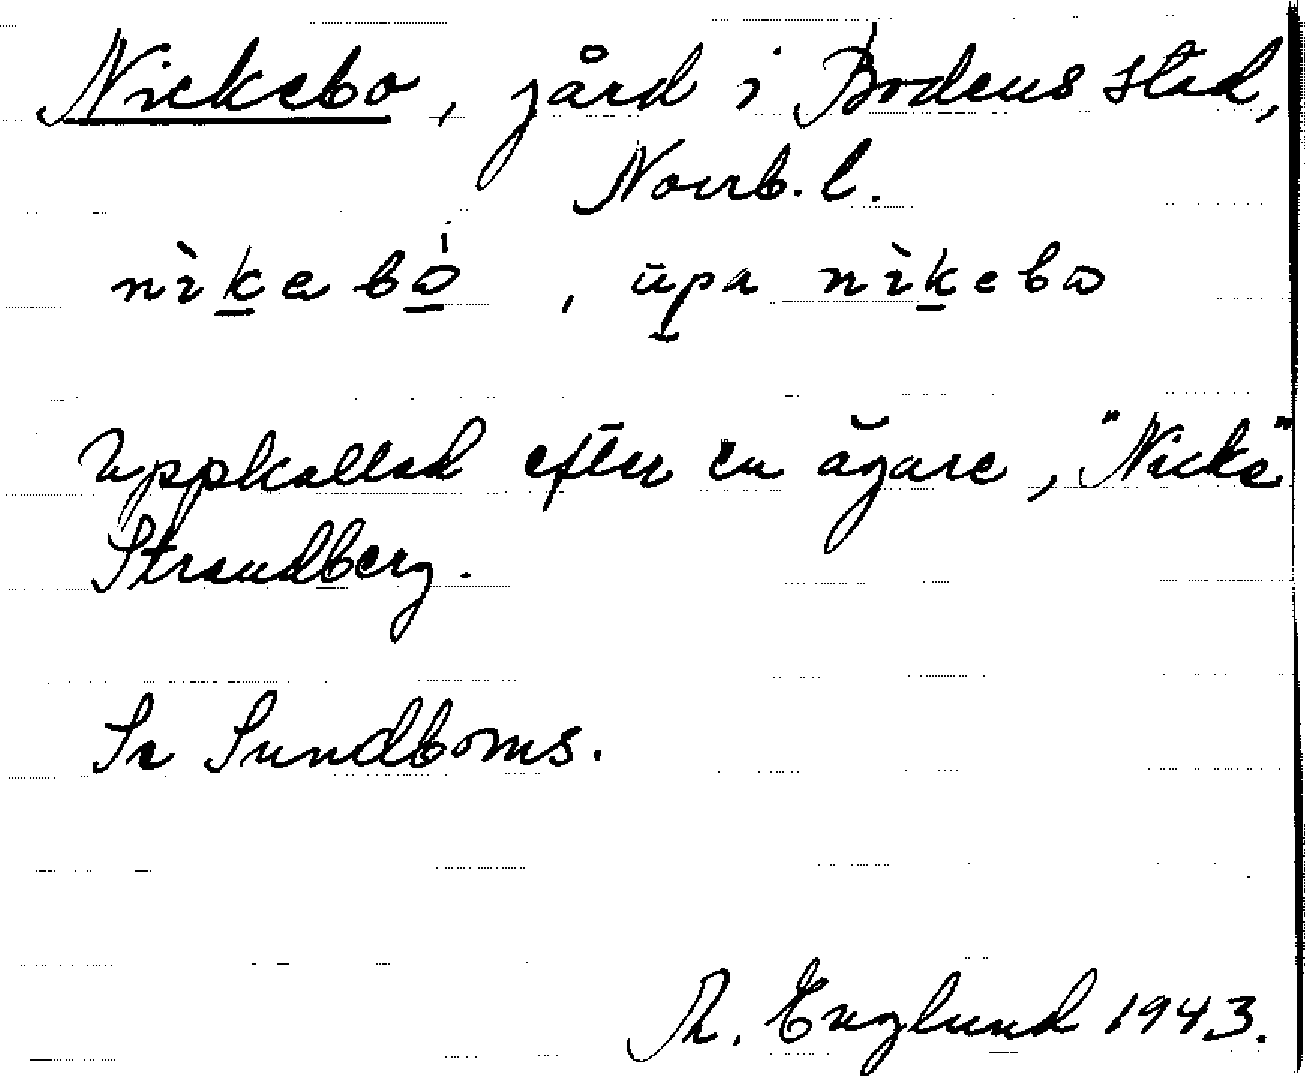 Nickebo, gård i Bodens stad,
Norrb. l.
nìkebó, ūpa nìkebo
Uppkallad efter en ägare, "Nicke"
Strandberg.
Se Sundboms.
R. Englund 1943.